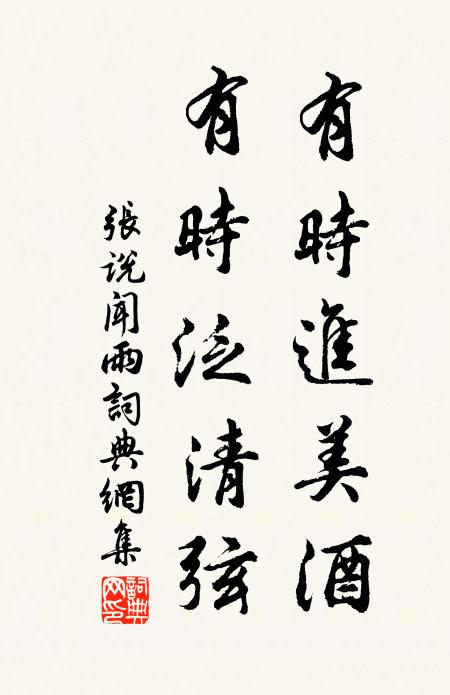 有時進美酒
有時泛清弦
張説聞雨詞典網集
詞典網印